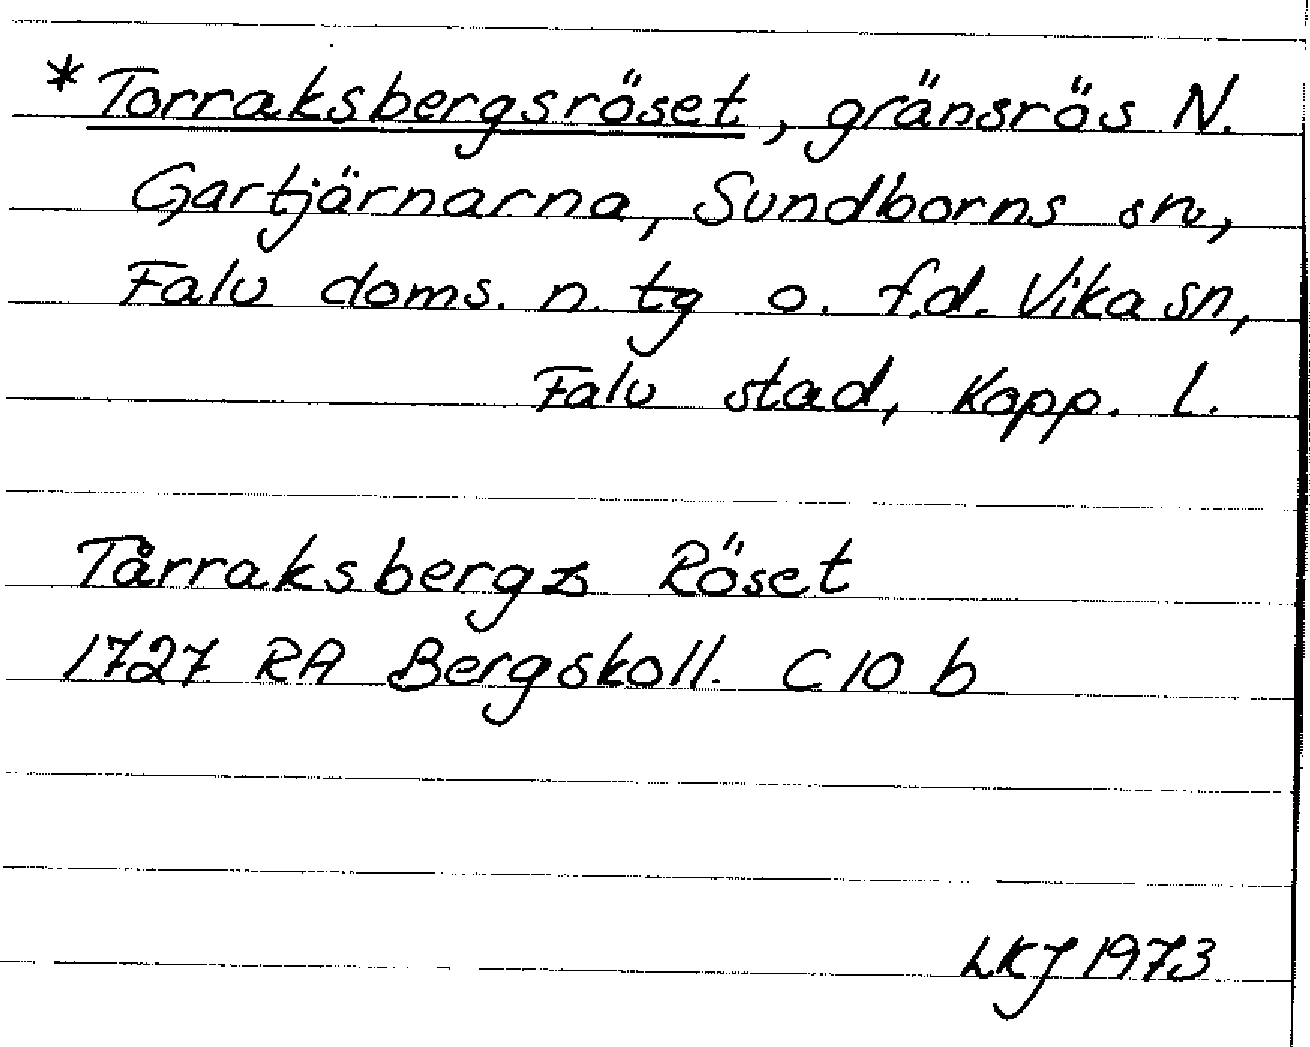 *Torraksbergsröset, gränsrös N.
Gartjärnarna, Sundborns sn,
Falu doms. n. tg o. f.d. Vika sn,
Falu stad, Kopp. l.
Tårraksbergz Röset
1727 RA Bergskoll. C 10 b
LKJ 1973